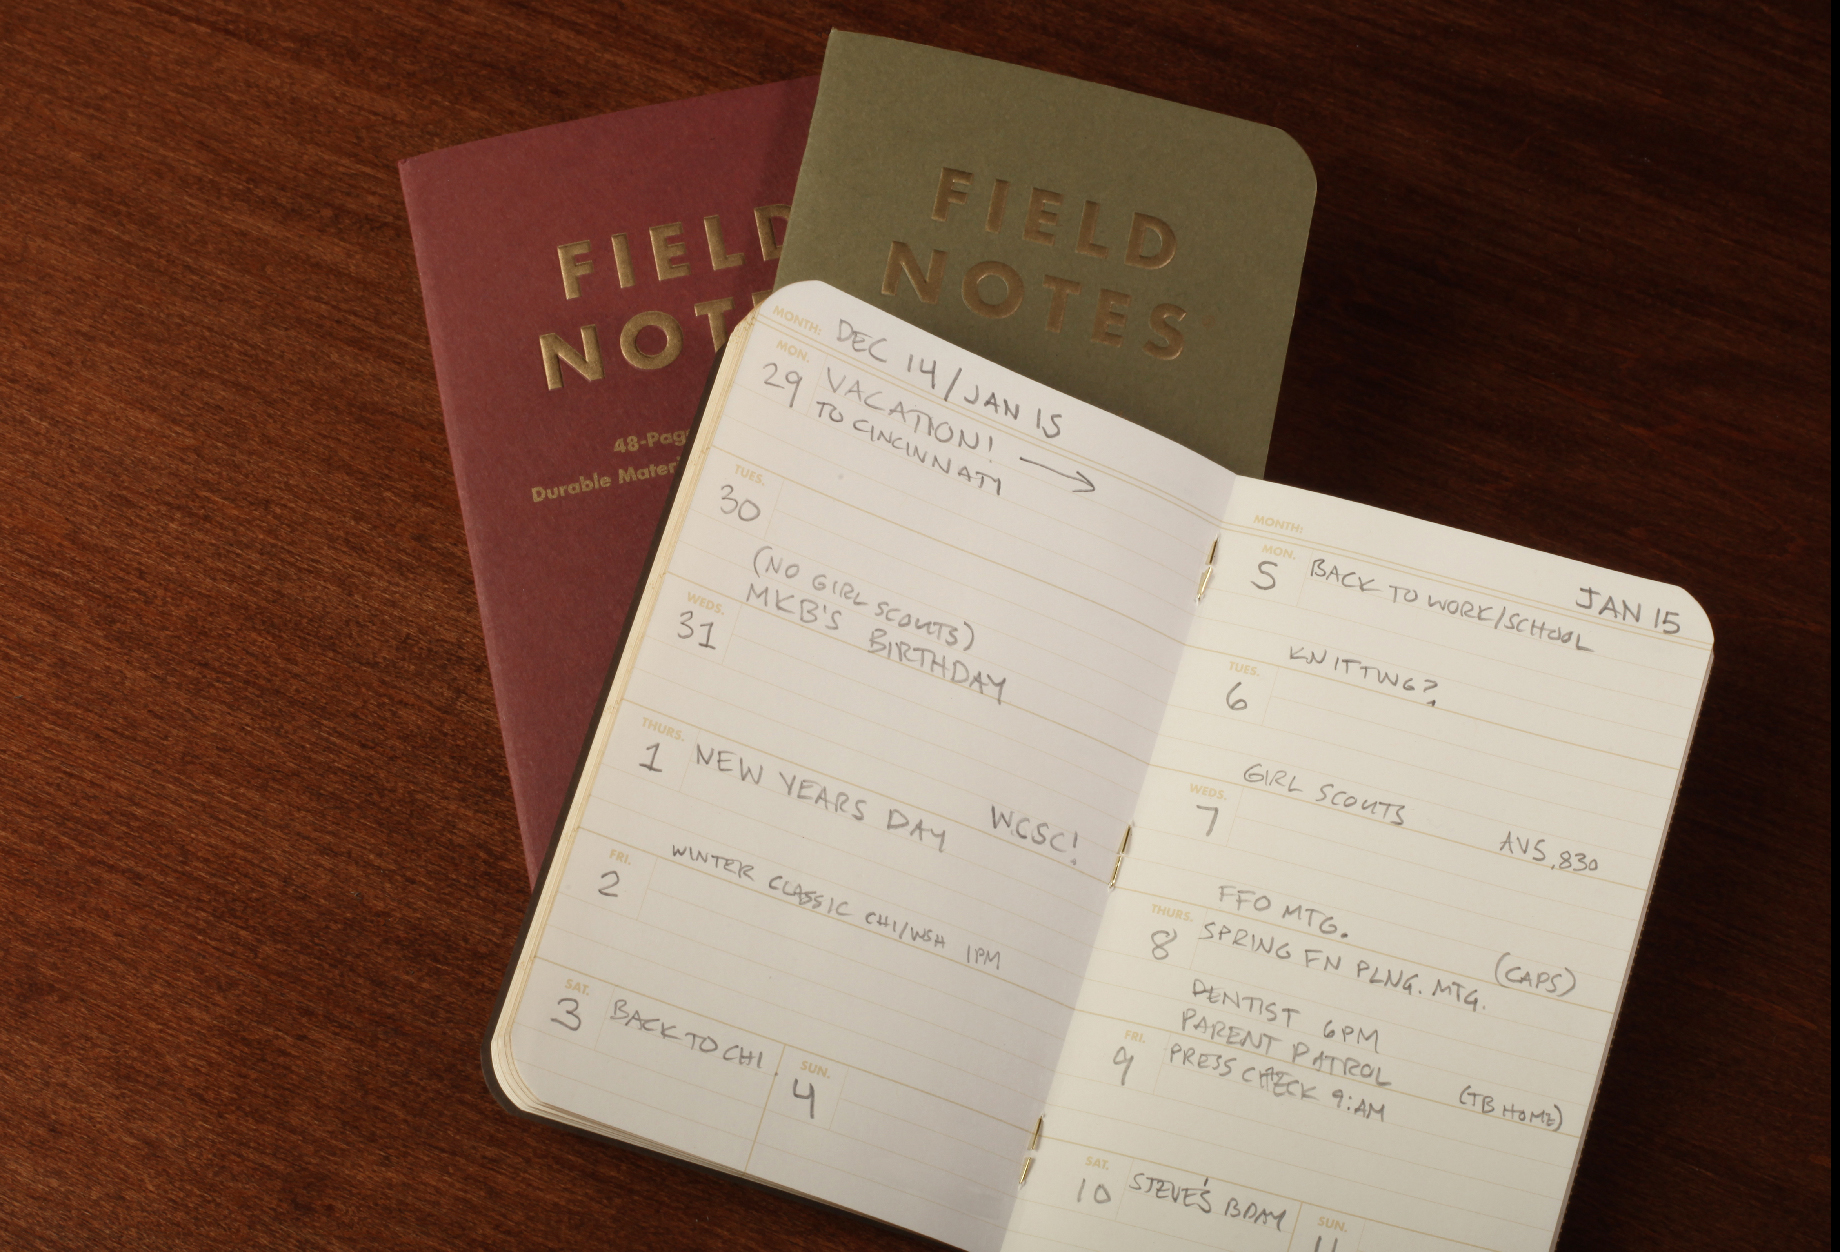 FIELD
NOT
48-Pag
Durable Mater
FIELD
NOTES
MONTH: DEC 14/JAN 15
MON.
29 VACATION!
TO CINCINNATI
TUES.
30
(NO GIRL SCOUTS)
WEDS. MKB'S BIRTHDAY
31
THURS.
1 NEW YEARS DAY W.C.S.C!
FRI.
2 WINTER CLASSIC CHI/WSH 1PM
SAT.
3 BACK TO CHI.
SUN.
4
MONTH:
JAN 15
MON.
5 BACK TO WORK/SCHOOL
KNITTING?
TUES.
6
GIRL SCOUTS
WEDS.
7 AVS.830
FFO MTG.
THURS.
8 SPRING FN PLNG. MTG. (CAPS)
DENTIST 6PM
PARENT PATROL
FRI.
9 PRESS CHECK 9:AM (TB HOME)
SAT.
10 STEVE'S BDAY
SUN.
11